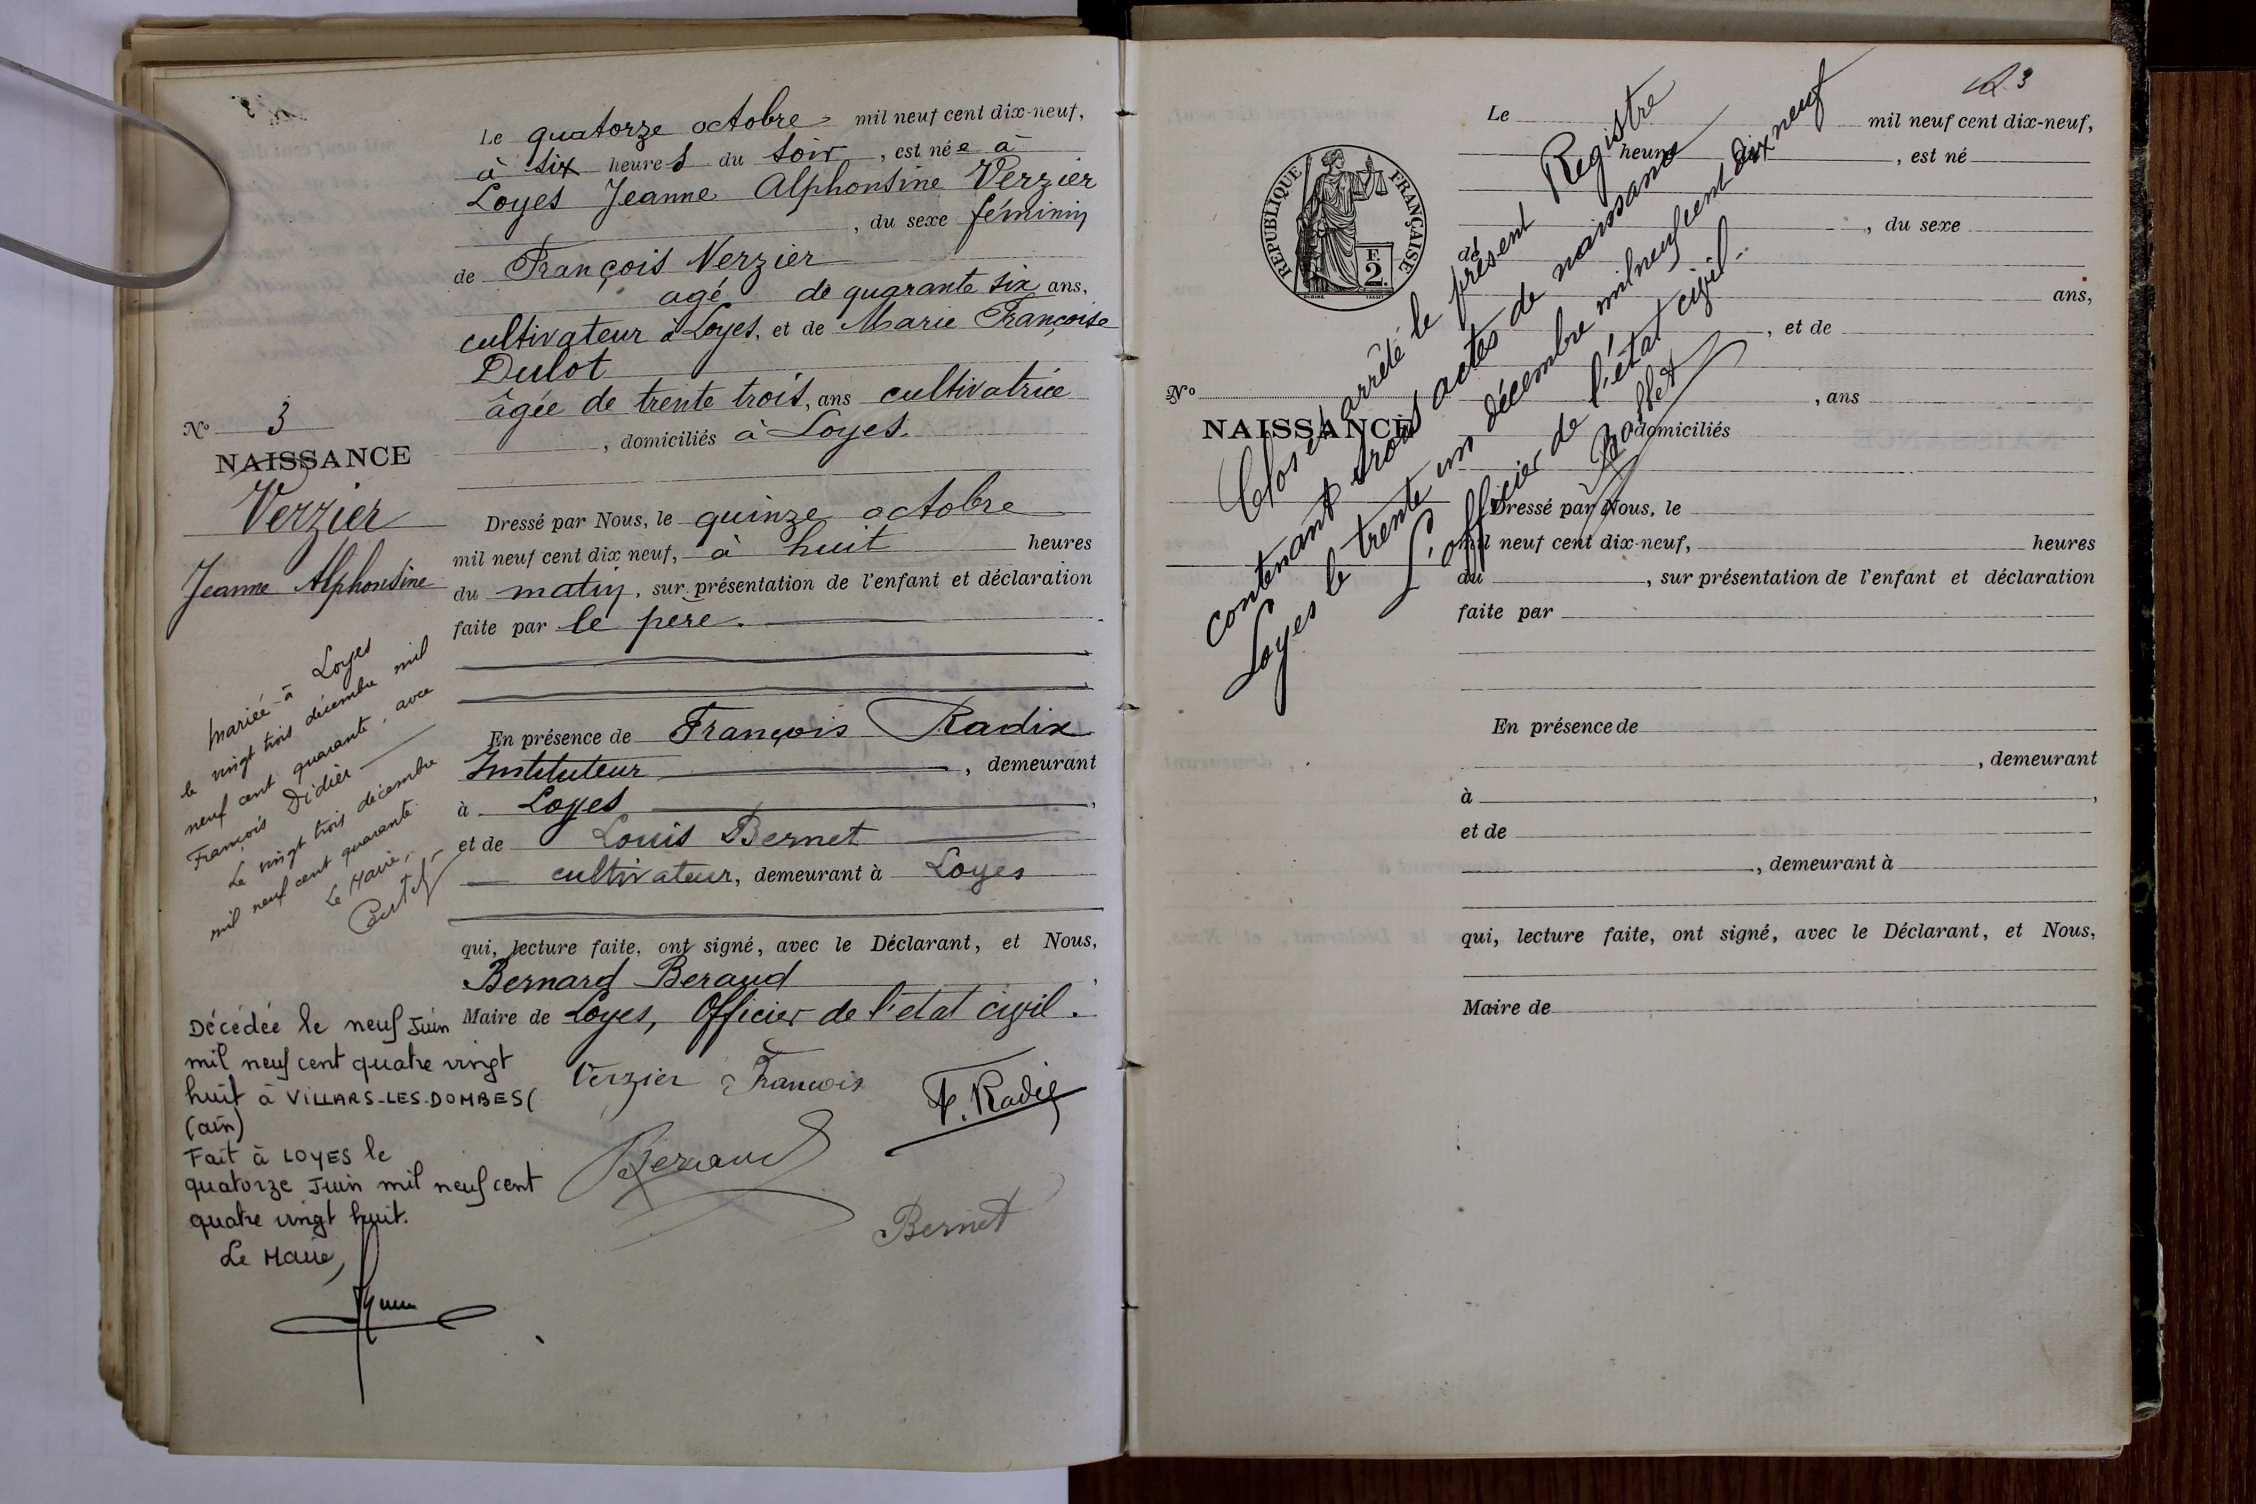 Le quatorze octobre mil neuf cent dix-neuf,
à six heures du soir, est née à
Loyes Jeanne Alphonsine Verzier
, du sexe féminin
de François Verzier
agé de quarante six ans,
cultivateur à Loyes, et de Marie Françoise
Dulot
âgée de trente trois, ans cultivatrice
, domiciliés à Loyes.
No 3
NAISSANCE
Verzier
Jeanne Alphonsine
Dressé par Nous, le quinze octobre
mil neuf cent dix neuf, à huit heures
du matin, sur présentation de l'enfant et déclaration
faite par le père.
mariée à Loyes
le vingt trois décembre mil
neuf cent quarante, avec
François Didier
Le vingt trois décembre
mil neuf cent quarante.
Le Maire,
En présence de François Radix
Instituteur, demeurant
à Loyes,
et de Louis Bernet
cultivateur, demeurant à Loyes
qui, lecture faite, ont signé, avec le Déclarant, et Nous,
Bernard Beraud,
Maire de Loyes, Officier de l'etat civil.
Verzier François
F. Radix
Beraud
Bernet
Décédée le neuf Juin
mil neuf cent quatre vingt
huit à VILLARS-LES-DOMBES (
(ain)
Fait à LOYES le
quatorze Juin mil neuf cent
quatre vingt huit.
Le Maire,
3
RÉPUBLIQUE FRANÇAISE
F.
2.
Le mil neuf cent dix-neuf,
heure, est né
, du sexe
de
ans,
, et de
No
NAISSANCE
, ans
domiciliés
Dressé par Nous, le
mil neuf cent dix-neuf, heures
du, sur présentation de l'enfant et déclaration
faite par
En présence de
, demeurant
à,
et de
, demeurant à
qui, lecture faite, ont signé, avec le Déclarant, et Nous,
Maire de
Clos et arrêté le présent Registre
contenant trois actes de naissance
Loyes le trente un décembre mil neuf cent dix neuf
L'officier de l'état civil.